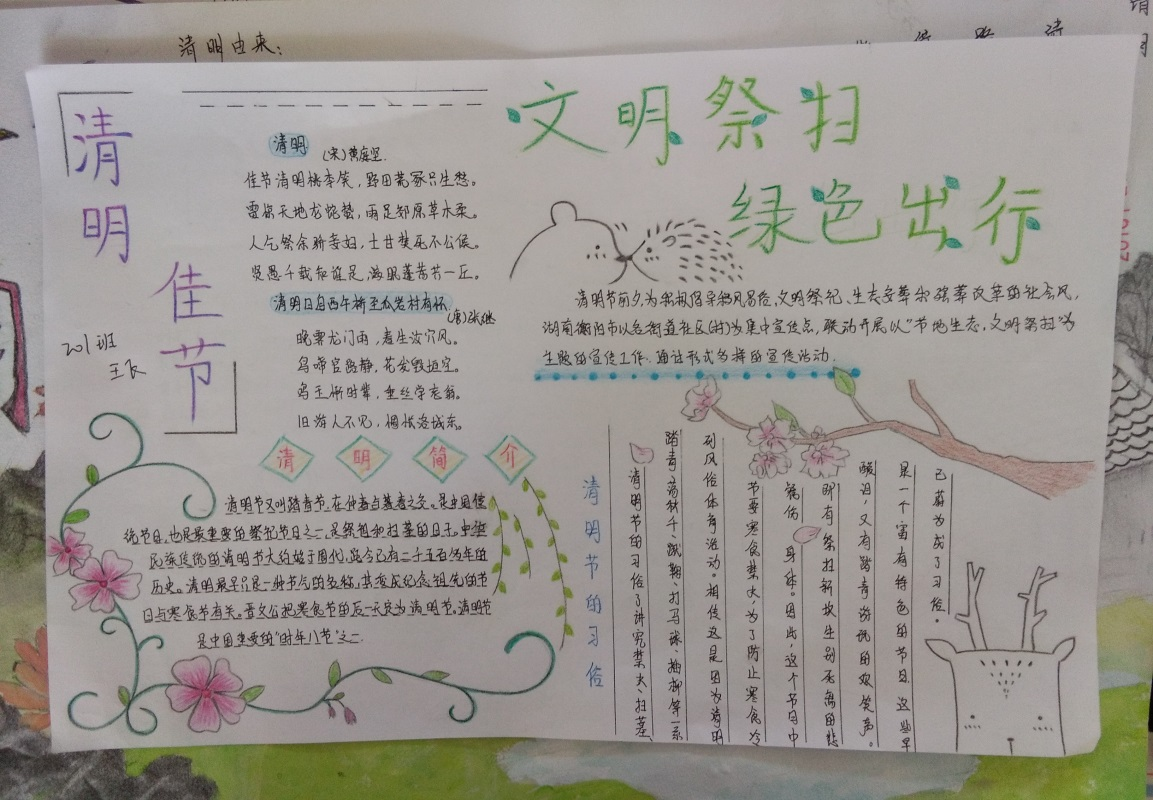 清明由来:
清明
佳节
201班
文明祭扫
绿色出行
清明
(宋)黄庭坚.
佳节清明桃李笑，野田荒冢只生愁。
雷惊天地龙蛇蛰，雨足郊原草木柔。
人乞祭余骄妾妇，士甘焚死不公侯。
贤愚千载知谁是，满眼蓬蒿共一丘。
清明日自西午桥至瓜岩村有怀
(唐)张继
晚霁龙门雨，春生汝穴风。
鸟啼官路静，花发毁垣空。
鸣玉惭时辈，垂丝学老翁。
旧游人不见，惆怅洛城东。
清明节前夕,为积极倡导树风易俗,文明祭祀、生态安葬和殡葬改革的社会风,
湖南衡阳市以各街道社区(村)为集中宣传点，联动开展以"节地生态，文明祭扫"为
主题的宣传工作.通过形式多样的宣传活动.
清明简介
清明节又叫踏青节,在仲春与暮春之交。是中国传
统节日,也是最重要的祭祀节日之一,是祭祖和扫墓的日子。中华
民族传统的清明节大约始于周代,距今已有二千五百多年的
历史。清明最早只是一种节气的名称,其变成纪念祖先的节
日与寒食节有关。晋文公把寒食节的后一天定为清明节。清明节
是中国重要的"时年八节"之一
清明节的习俗
清明节的习俗了讲究禁火、扫墓、
踏青、荡秋千、蹴鞠、打马球、插柳等一系
列风俗体育活动。相传这是因为清明
节要寒食禁火,为了防止寒食冷
餐伤身体。因此,这个节日中
即有祭扫新坟生别死离的悲
酸泪,又有踏青游玩的欢笑声。
是一个富有特色的节日,这些早
已蔚为成了习俗.